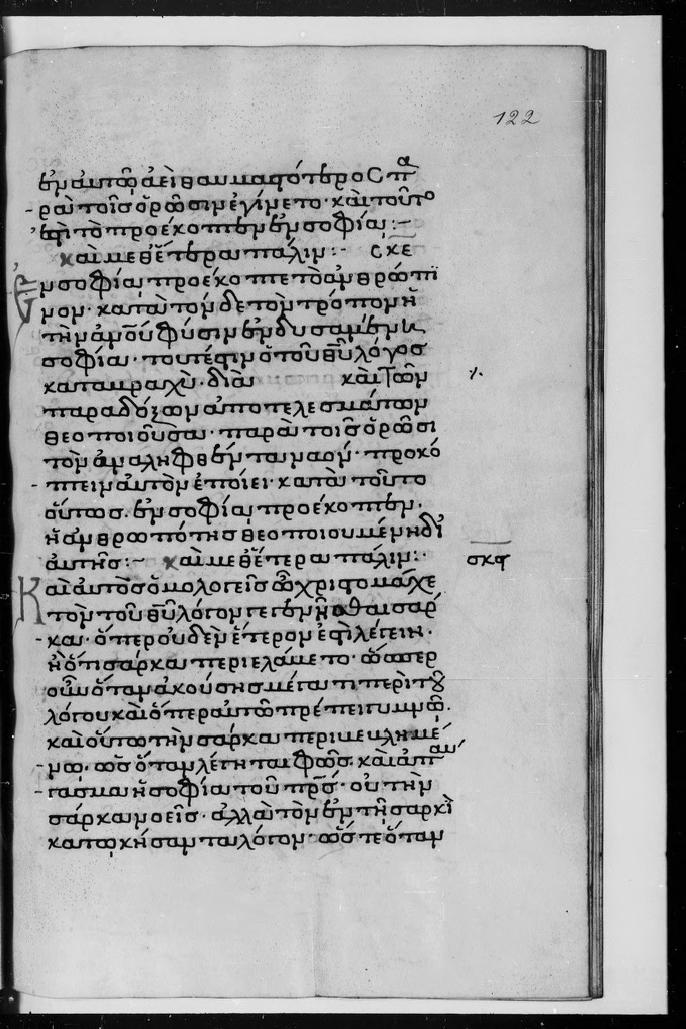 122
ἐν αὐτῷ ἀεὶ θαυμασιώτερος πα
ρὰ τοῖς ὁρῶσιν ἐγίνετο· καὶ τοῦτο
ἐστὶ τὸ προέκοπτεν ἐν σοφία :~
καὶ μεθ' ἕτερα πάλιν :~ σκε
Ἐν σοφία προέκοπτε τὸ ἀνθρώπι
νον· κατὰ τόνδε τὸν τρόπον ἡ
τὴν ἀν̅ο̅υ̅ φύσιν ἐνδυσαμένη
σοφία· τουτέστιν ὁ τοῦ θ̅υ̅ λόγος
καταβραχὺ· διὰ καὶ τῶν
παραδόξων ἀποτελεσμάτων
θεοποιοῦσα· παρὰ τοῖς ὁρῶσι
τὸν ἀναληφθέντα ναὸν· προκό
πτειν αὐτὸν ἐποίει· κατὰ τοῦτο
οὕτως. ἐν σοφία προέκοπτεν.
ἡ ἀνθρωπότης θεοποιουμένη δι
αὐτῆς :~ καὶ μεθ' ἕτερα πάλιν :·
σκϛ
Καὶ αὐτὸς ὁμολογεῖς ὦ χριστομάχε
τὸν τοῦ θ̅υ̅ λόγον γεγενῆσθαι σάρ
κα· ὅπερ οὐδὲν ἕτερόν ἐστι λέγειν.
ἢ ὅτι σάρκα περιελάμετο· ὥσπερ
οὖν ὅταν ἀκούσης μέγα τι περὶ τοῦ
λόγου καὶ ὅπερ αὐτῷ πρέπει γυμνῷ.
καὶ οὕτω τὴν σάρκα περιβεβλημέ
νῳ. ὡς ὅταν λέγηται φῶς· καὶ ἀπαύ
γασμα ἢ σοφία τοῦ π̅ρ̅ς̅· οὐ τὴν
σάρκα νοεῖς· ἀλλὰ τὸν ἐν τῇ σαρκὶ
κατῳκήσαντα λόγον· ὥστε ὅταν